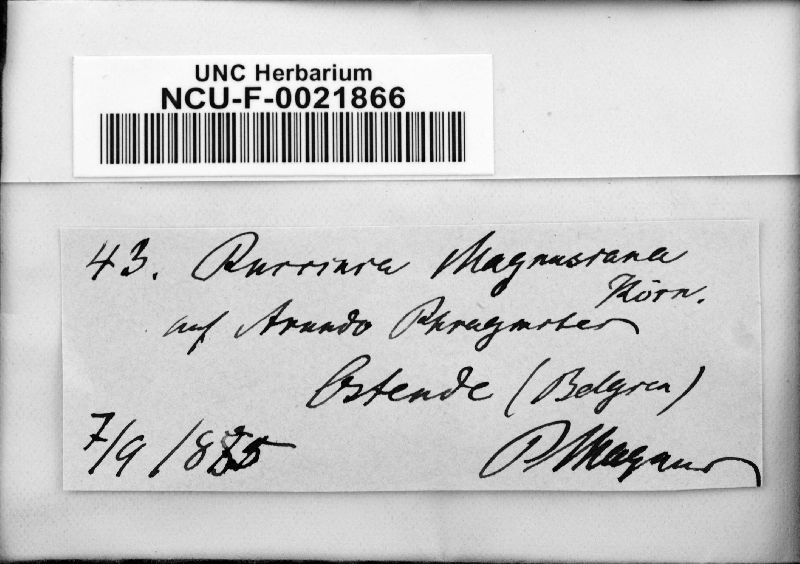 UNC Herbarium
NCU-F-0021866
43. Puccinia Magnusiana
Körn.
auf Arundo Phragmites
Ostende (Belgien)
7/9
P Magnus